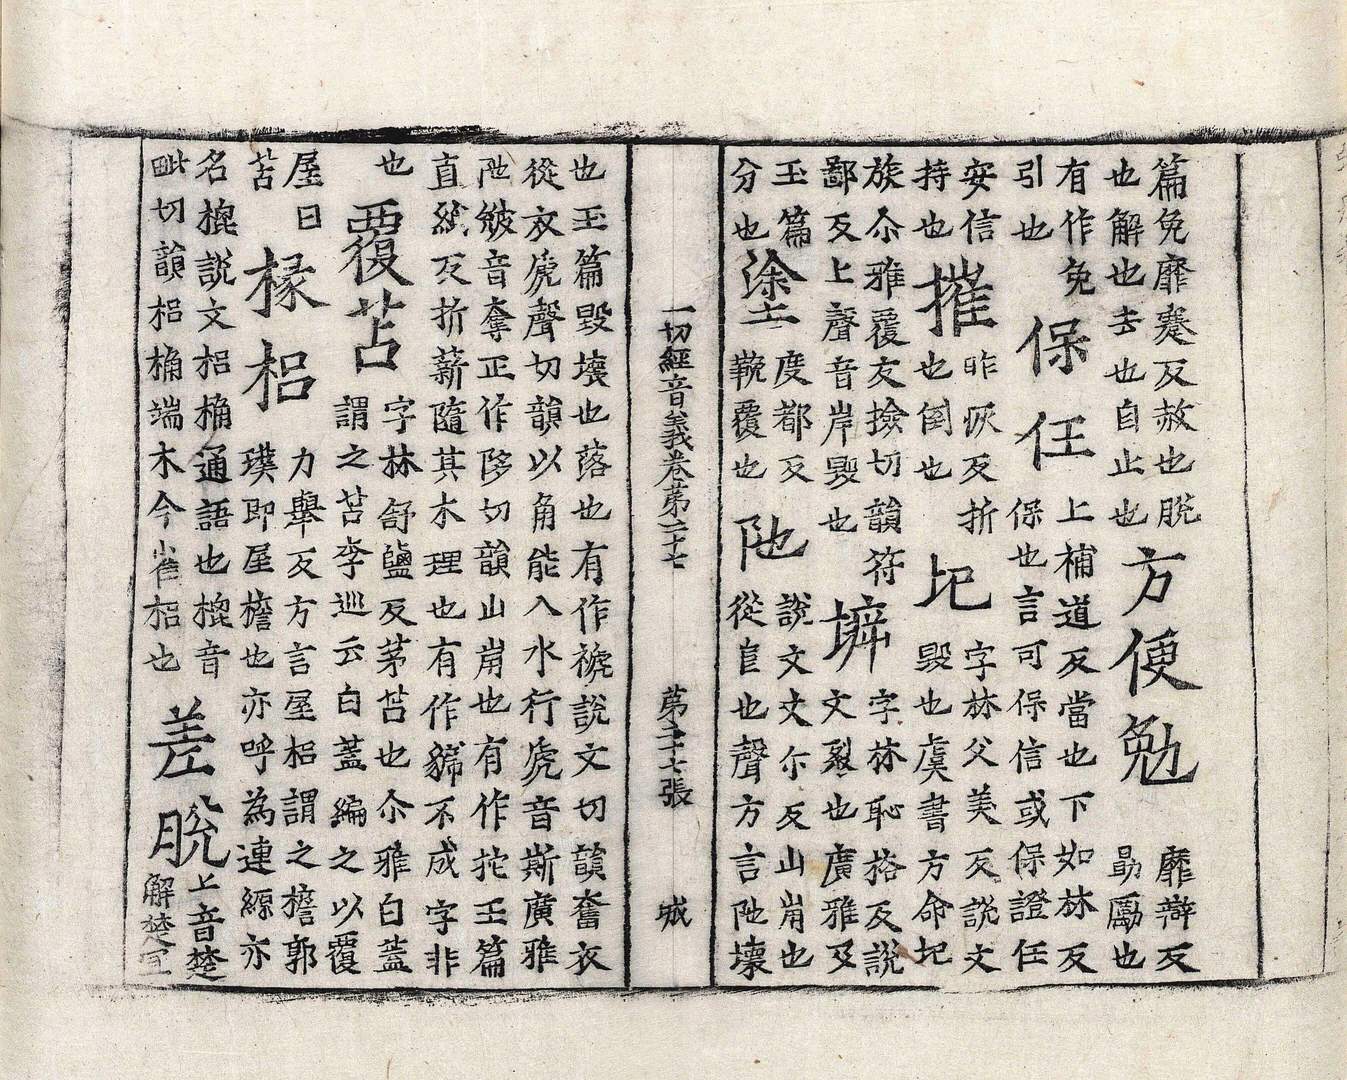 篇免靡蹇反赦也脫
也解也去也自止也
方便勉
靡辯反
勗勵也
有作免
引也
保任
上補道反當也下如林反
保也言可保信或保證任
安信
持也
摧
昨恢反折
也倒也
圮
字林父美反說文
毀也虞書方命圮
族尒雅覆友撿切韻符
鄙反上聲音岸毀也
字林恥格反說
文裂也廣雅及
玉篇
分也
塗
度都反
覆也
阤
說文丈尒反山崩也
從𨸏也聲方言阤壞
一切經音義卷第二十七
第二十七張
城
也玉篇毀壞也落也有作褫說文切韻奪衣
從衣虒聲切韻以角能入水行虒音斯廣雅
阤音奪正作陊切韻山崩也有作拕玉篇
直紙反折薪隨其木理也有作不成字非
也
覆苫
字林舒鹽反茅苫也尒雅白蓋
謂之苫李巡云白蓋編之以覆
屋曰
苫
椽梠
力舉反方言屋梠謂之檐郭
璞即屋檐也亦呼為連緜亦
名槐說文梠桷通語也槐音
毗切韻梠桷端木今雀梠也
差脫
上音楚
解楚宜